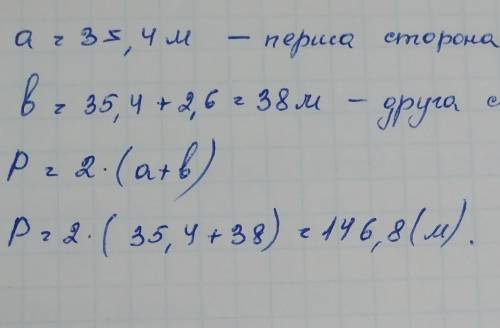 a = 35,4 м — перша сторона
b = 35,4 + 2,6 = 38 м — друга
P = 2 · (a+b)
P = 2 · (35,4 + 38) = 146,8 (м).